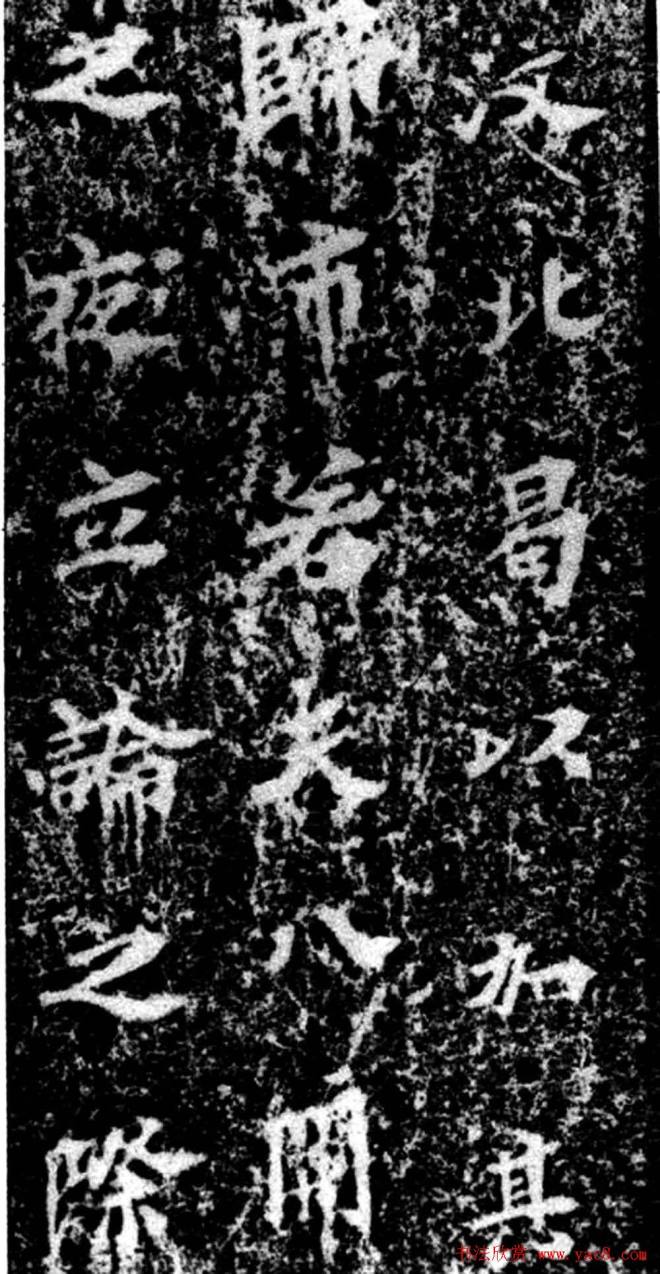 汶北曷以加其
歸市若夫八關
之夜立論之際
书法欣赏 www.yac8.com